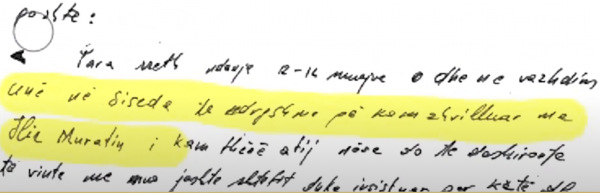 poshtë:
Para rreth ndonjë 12-14 muajve e dhe ne vazhdim
unë në bisedat e ndryshme që kam zhvilluar me
Ilir Muratin i kam thënë atij nëse do të dëshironte
të vinte me mua jashtë shtetit duke insistuar për këtë